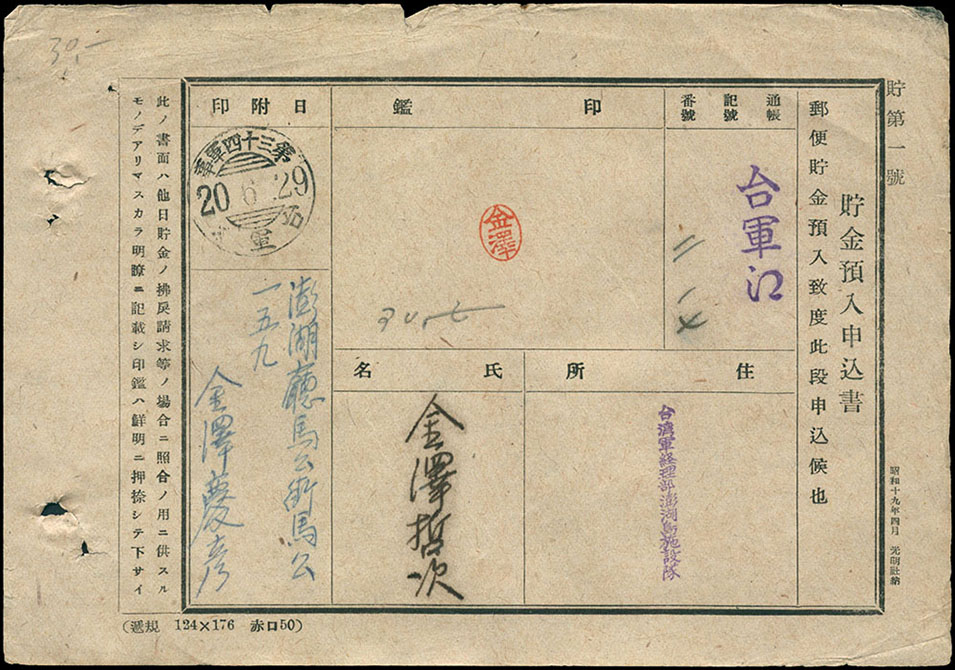 貯第一號
貯金預入申込書
郵便貯金預入致度此段申込候也
昭和十九年四月 光明社納
通帳
記號
番號
台軍江
印鑑
金澤
日附印
第三十四軍事
20 6 29
住所
台湾軍経理部澎湖島施設隊
氏名
金澤哲次
澎湖廳馬公街馬公
一五九
金澤慶彦
此ノ書面ハ他日貯金ノ拂戻請求等ノ場合ニ照合ノ用ニ供スル
モノデアリマスカラ明瞭ニ記載シ印鑑ハ鮮明ニ押捺シテ下サイ
(遞規 124×176 赤口50)
30,—